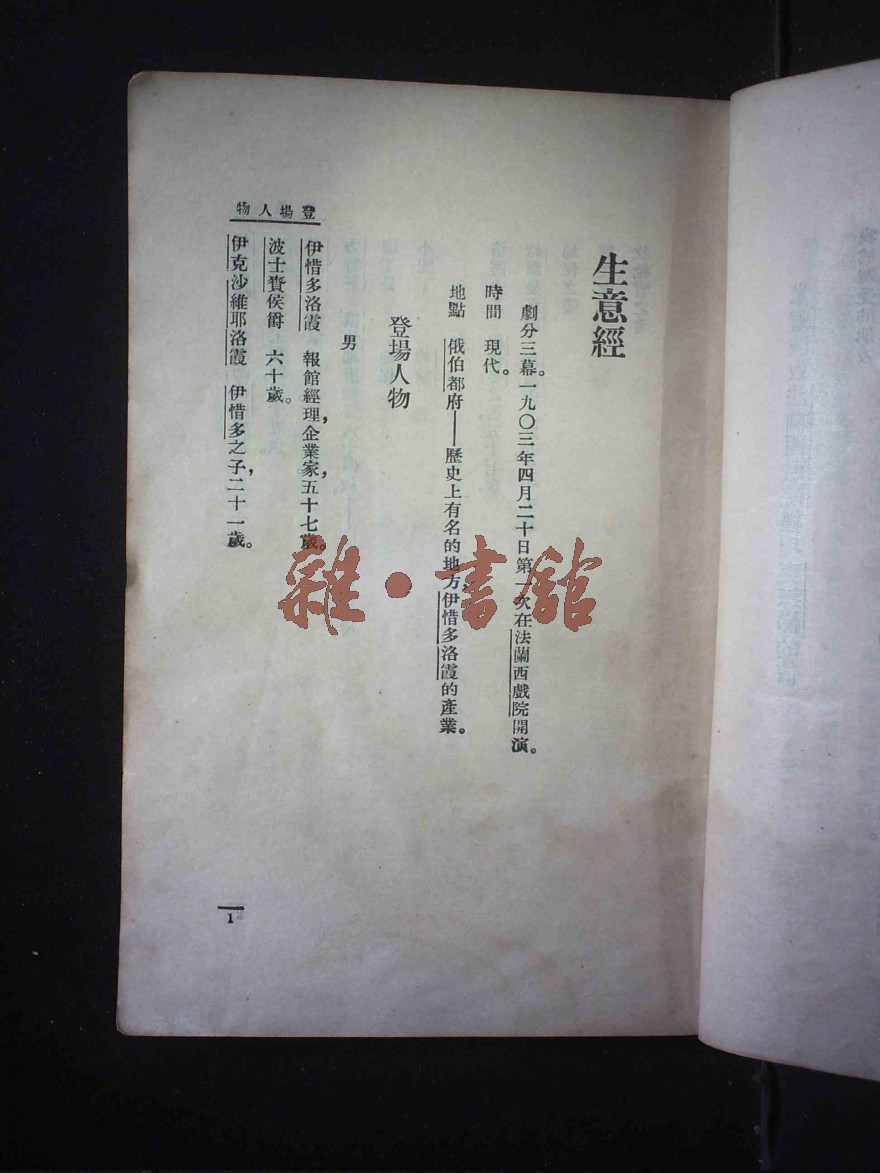 生意經
劇分三幕。一九〇三年四月二十日第一次在法蘭西戲院開演。
時間　現代。
地點　俄伯都府——歷史上有名的地方，伊惜多洛霞的產業。
登場人物
男
伊惜多洛霞　報館經理，企業家，五十七歲。
波士賚侯爵　六十歲。
伊克沙維耶洛霞　伊惜多之子，二十一歲。
登場人物
1
雜·書館